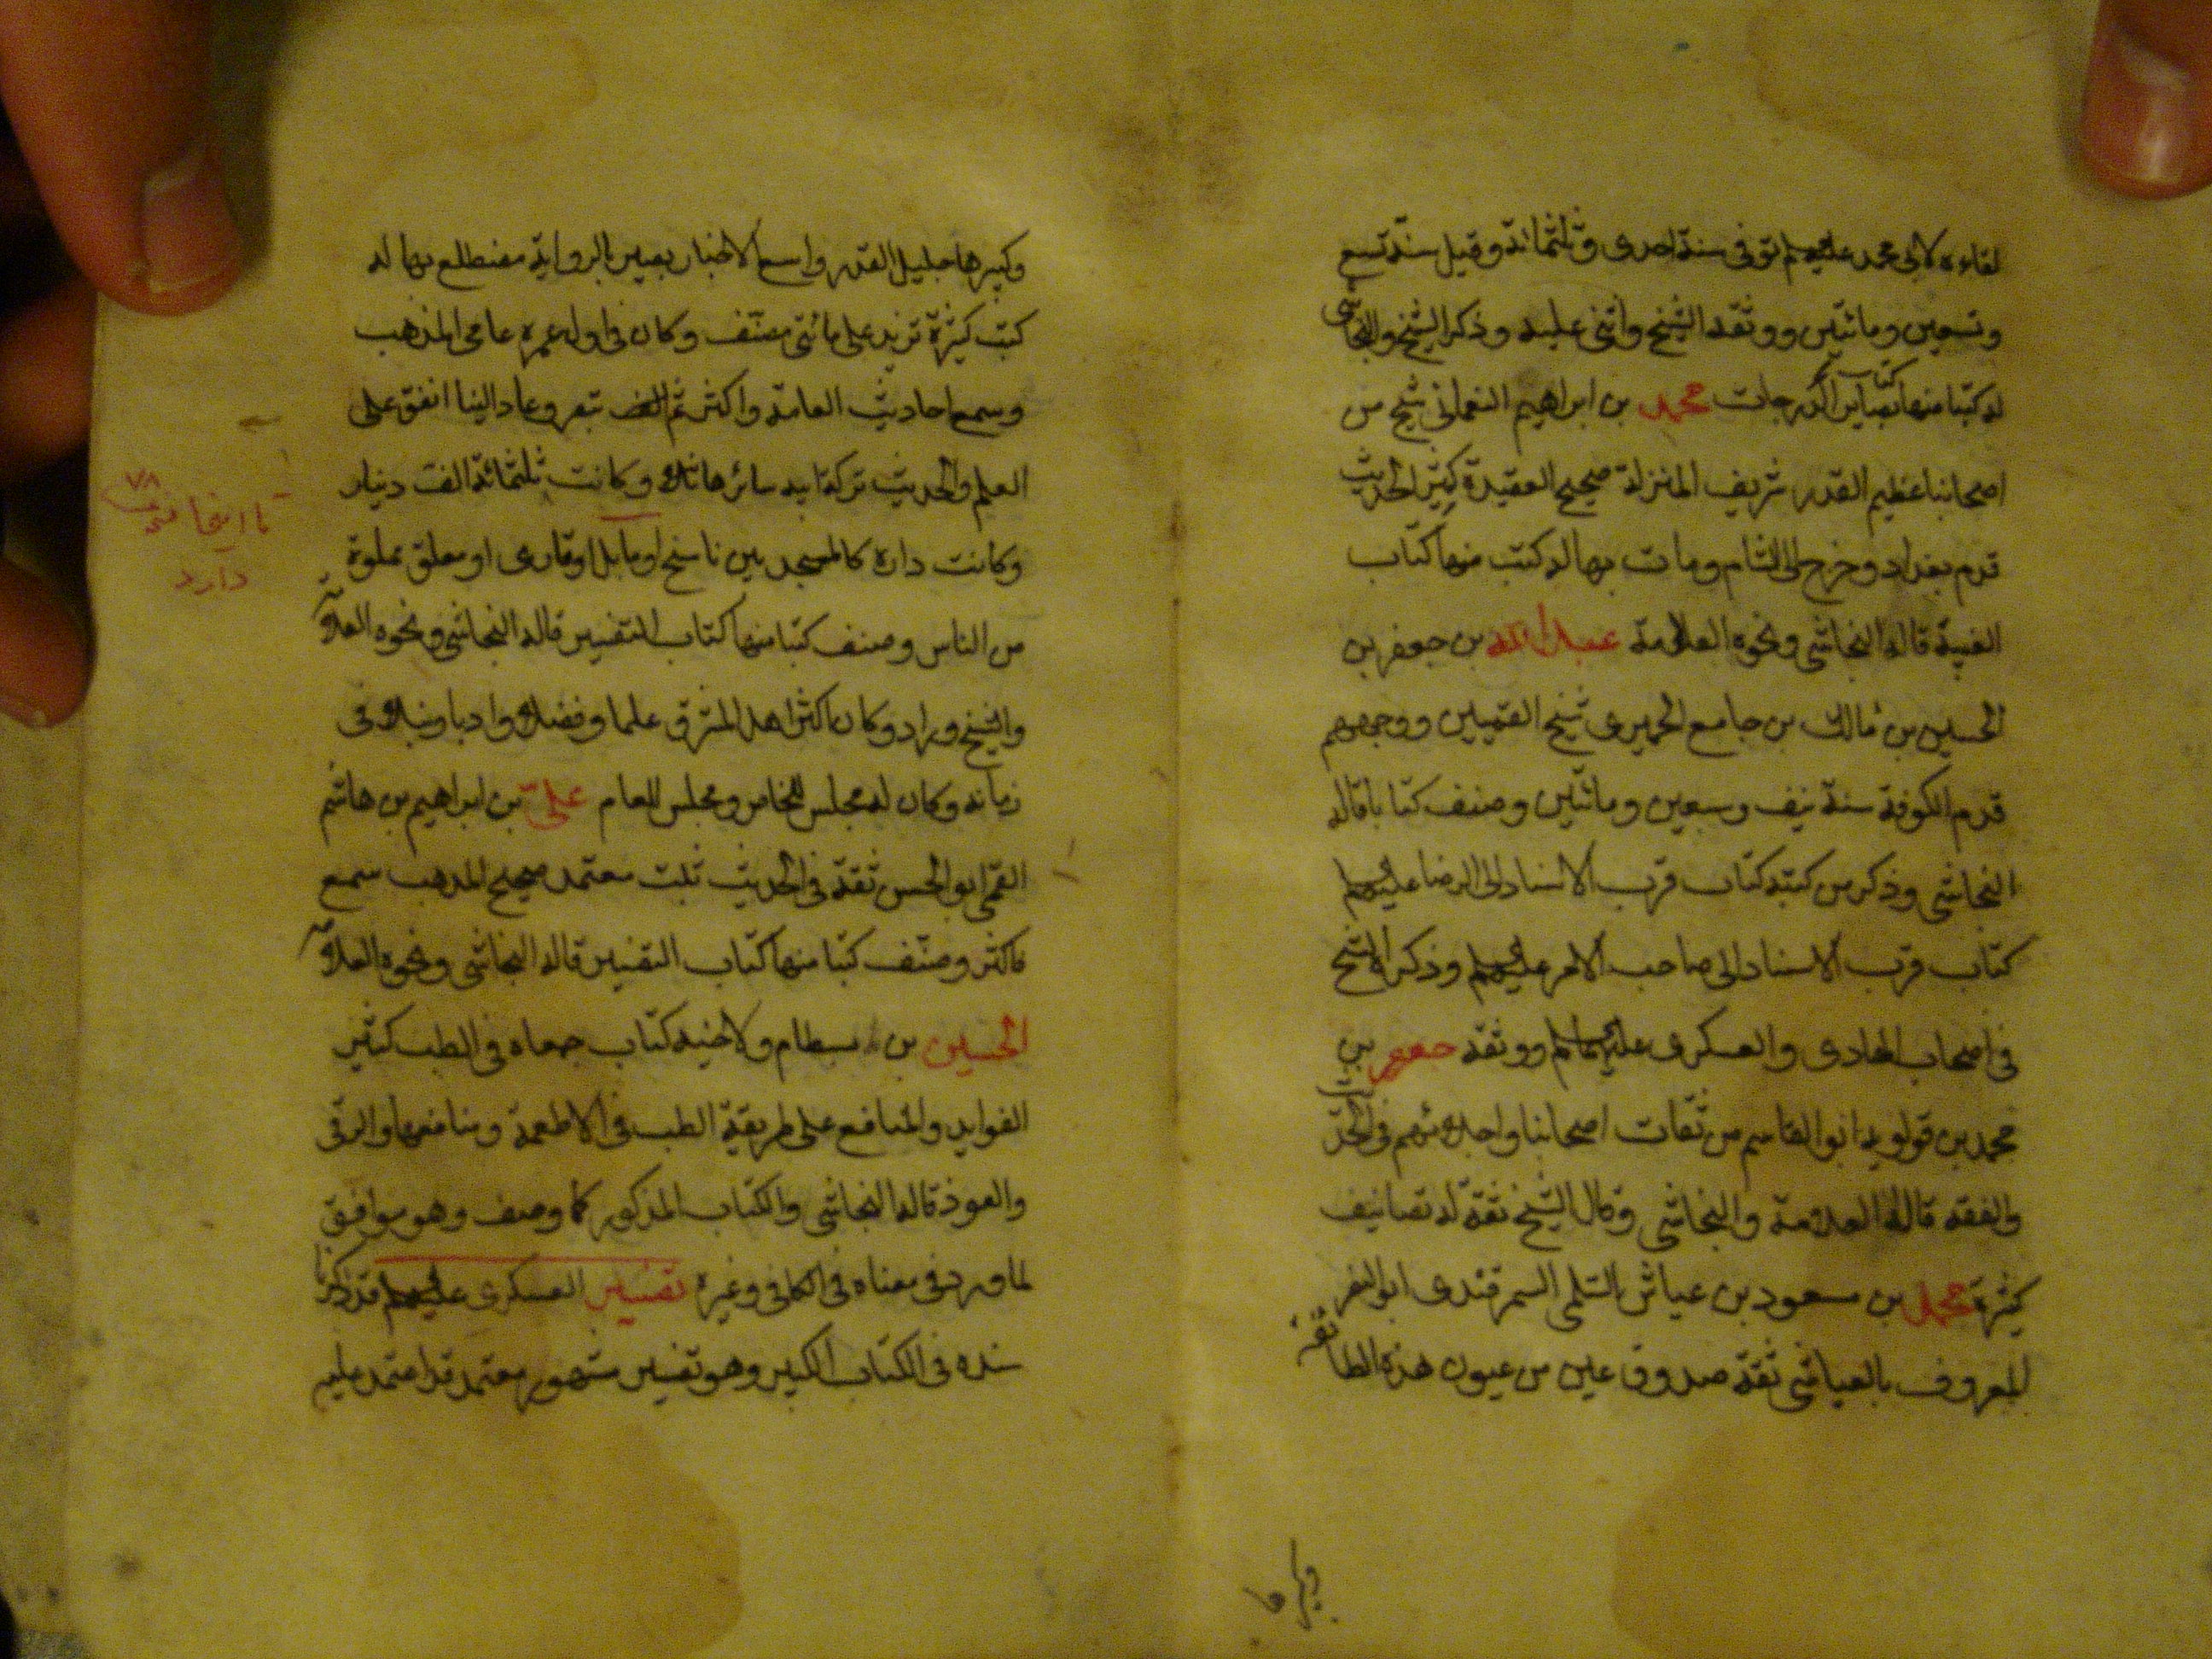 لقاءه لابى محمد عليهم توفى سنة احدى وثلثمائة وقيل سنة تسع
وتسعين ومائتين ووثقه الشيخ واثنى عليه وذكر الشيخ والنجاشى
له كتبا منها كتاب بصاير الدرجات محمد بن ابراهيم النعمانى شيخ من
اصحابنا عظيم القدر شريف المنزلة صحيح العقيدة كثير الحديث
قدم بغداد وخرج الى الشام ومات بها له كتب منها كتاب
الغيبة قاله النجاشى ونحوه العلامة عبد الله بن جعفر بن
الحسين بن مالك بن جامع الحميرى شيخ القميين ووجههم
قدم الكوفة سنة نيف وسبعين ومائتين وصنف كتابا قاله
النجاشى وذكر من كتبه كتاب قرب الاسناد الى الرضا عليهم
كتاب قرب الاسناد الى صاحب الامر عليهم وذكره الشيخ
فى اصحاب الهادى والعسكرى عليهما ووثقه جعفر بن
محمد بن قولويه ابو القاسم من ثقات اصحابنا واجلائهم فى الحديث
والفقه قاله العلامة والنجاشى وقال الشيخ ثقة له تصانيف
كثيرة محمد بن مسعود بن عياش السلمى السمرقندى ابو النضر
المعروف بالعياشى ثقة صدوق عين من عيون هذه الطائفة
وكبيرها
وكبيرها جليل القدر واسع الاخبار بصير بالرواية مضطلع بها له
كتب كثيرة تزيد على مائتى مصنف وكان فى اول عمره عامى المذهب
وسمع احاديث العامة واكثر ثم تبصر وعاد الينا انفق على
العلم والحديث تركة ابيه سائرها وكانت ثلثمائة الف دينار
وكانت داره كالمسجد بين ناسخ او مقابل او قارى او معلق مملوة
من الناس وصنف كتبا منها كتاب التفسير قاله النجاشى ونحوه العلامة
والشيخ وزاد وكان اكثر اهل المشرق علما وفضلا وادبا ونبلا فى
زمانه وكان له مجلس للخاص ومجلس للعام على بن ابراهيم بن هاشم
القمى ابو الحسن ثقة فى الحديث ثبت معتمد صحيح المذهب سمع
فاكثر وصنف كتبا منها كتاب التفسير قاله النجاشى ونحوه العلامة
الحسين بن بسطام ولاخيه كتاب جمعاه فى الطب كثير
الفوايد والمنافع على طريقة الطب فى الاطعمة ومنافعها والرقى
والعوذ قاله النجاشى والكتاب المذكور كما وصف وهو موافق
لما ورد فى معناه فى الكافى وغيره تفسير العسكرى عليهم قد ذكرنا
سنده فى الكتاب الكبير وهو تفسير مشهور معتمد قد اعتمد عليه
٧٨
تا اينجا
دارد